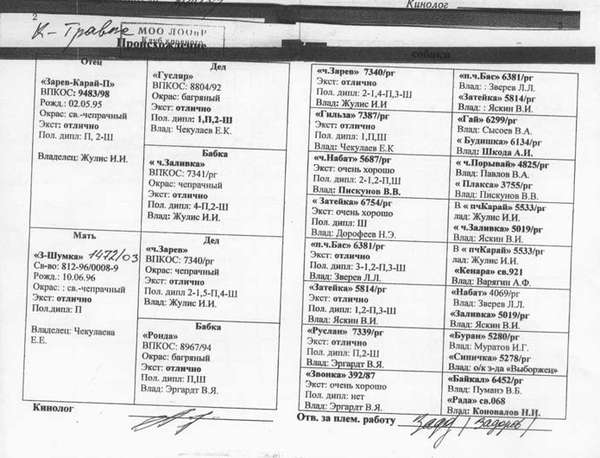 Кинолог
2
МОО ЛООиР
К- Травле
Происхождение
собаки
Отец
«Зарев-Карай-П»
ВПКОС: 9483/98
Рожд.: 02.05.95
Окрас: св.-чепрачный
Экст: отлично
Пол. дипл: П, 2-Ш
Владелец: Жулис И.И.
Дед
«Гусляр»
ВПКОС: 8804/92
Окрас: багряный
Экст: отлично
Пол. дипл: 1,П,2-Ш
Влад: Чекулаев Е.К
Бабка
« ч.Заливка»
ВПКОС: 7341/рг
Окрас: чепрачный
Экст: отлично
Пол. дипл: 4-П,2-Ш
Влад: Жулис И.И.
Мать
«З-Шумка» 1472/03
Св-во: 812-96/0008-9
Рожд.: 10.06.96
Окрас: : св.-чепрачный
Экст: отлично
Пол.дипл: П
Владелец: Чекулаева
Е.Е.
Дел
«ч.Зарев»
ВПКОС: 7340/рг
Окрас: чепрачный
Экст: отлично
Пол. дипл 2-1,5-П,4-Ш
Влад: Жулис И.И.
Бабка
«Ронда»
ВПКОС: 8967/94
Окрас: багряный
Экст: отлично
Пол. дипл: П,Ш
Влад: Эргардт В.Я.
Кинолог
«ч.Зарев» 7340/рг
Экст: отлично
Пол. дипл: 2-1,4-П,3-Ш
Влад: Жулис И.И
«Гильза» 7387/рг
Экст: отлично
Пол. дипл: 1,П,Ш
Влад: Чекулаев Е.К
«ч.Набат» 5687/рг
Экст: очень хорошо
Пол. дипл: 2-1,2-П,Ш
Влад: Пискунов В.В.
« Затейка» 6754/рг
Экст: очень хорошо
Пол. дипл: Ш
Влад: Дорофеев Н.Э.
«п.ч.Бас» 6381/рг
Экст: отлично
Пол. дипл: 3-1,2-П,3-Ш
Влад: Зверев Л.Л.
«Затейка» 5814/рг
Экст: отлично
Пол. дипл: 1,2-П,3-Ш
Влад: Яскин В.И.
«Руслан» 7339/рг
Экст: отлично
Пол. дипл: П,2-Ш
Влад: Эргардт В.Я.
«Звонка» 392/87
Экст: очень хорошо
Пол. дипл: нет
Влад: Эргардт В.Я.
«п.ч.Бас» 6381/рг
Влад: : Зверев Л.Л.
«Затейка» 5814/рг
Влад: : Яскин В.И.
«Гай» 6299/рг
Влад: Сысоев В.А.
« Будишка» 6134/рг
Влад: Шкода А.И.
« ч.Порывай» 4825/рг
Влад: Павлов В.А.
« Плакса» 3755/рг
Влад: Пискунов В.В.
В « пчКарай» 5533/рг
лад: Жулис И.И.
« ч.Заливка» 5019/рг
Влад: Яскин В.И.
В « пчКарай» 5533/рг
лад: Жулис И.И.
«Кенара» св.921
Влад: Варягин А.Ф.
«Набат» 4069/рг
Влад: Зверев Л.Л.
«Заливка» 5019/рг
Влад: Яскин В.И.
«Буран» 5280/рг
Влад: Муратов И.Г.
«Синичка» 5278/рг
Влад: о/к з-да «Выборжец»
«Байкал» 6452/рг
Влад: Пуманэ В.Б.
«Рада» св.068
Влад: Коновалов Н.И.
Отв. за плем. работу